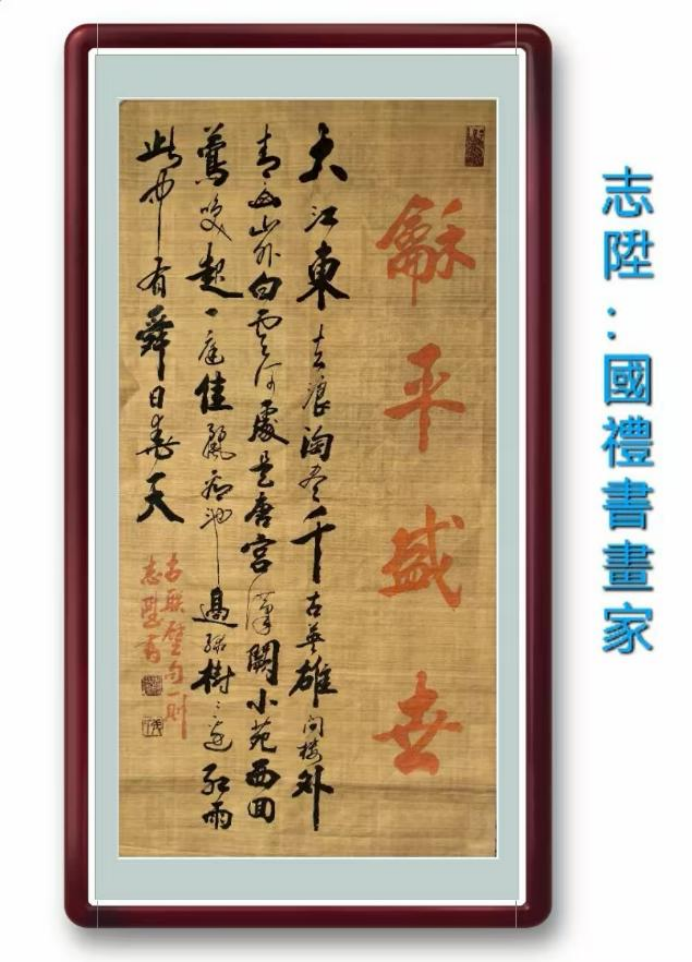 龢平盛世
大江東去浪淘盡千古英雄問樓外
青山山外白雲何處是唐宮漢闕小苑西回
鶯喚起一庭佳麗看池邊綠樹〻邊紅雨
此中有舜日堯天
古联壁句一則
志陞書
志陞:國禮書畫家